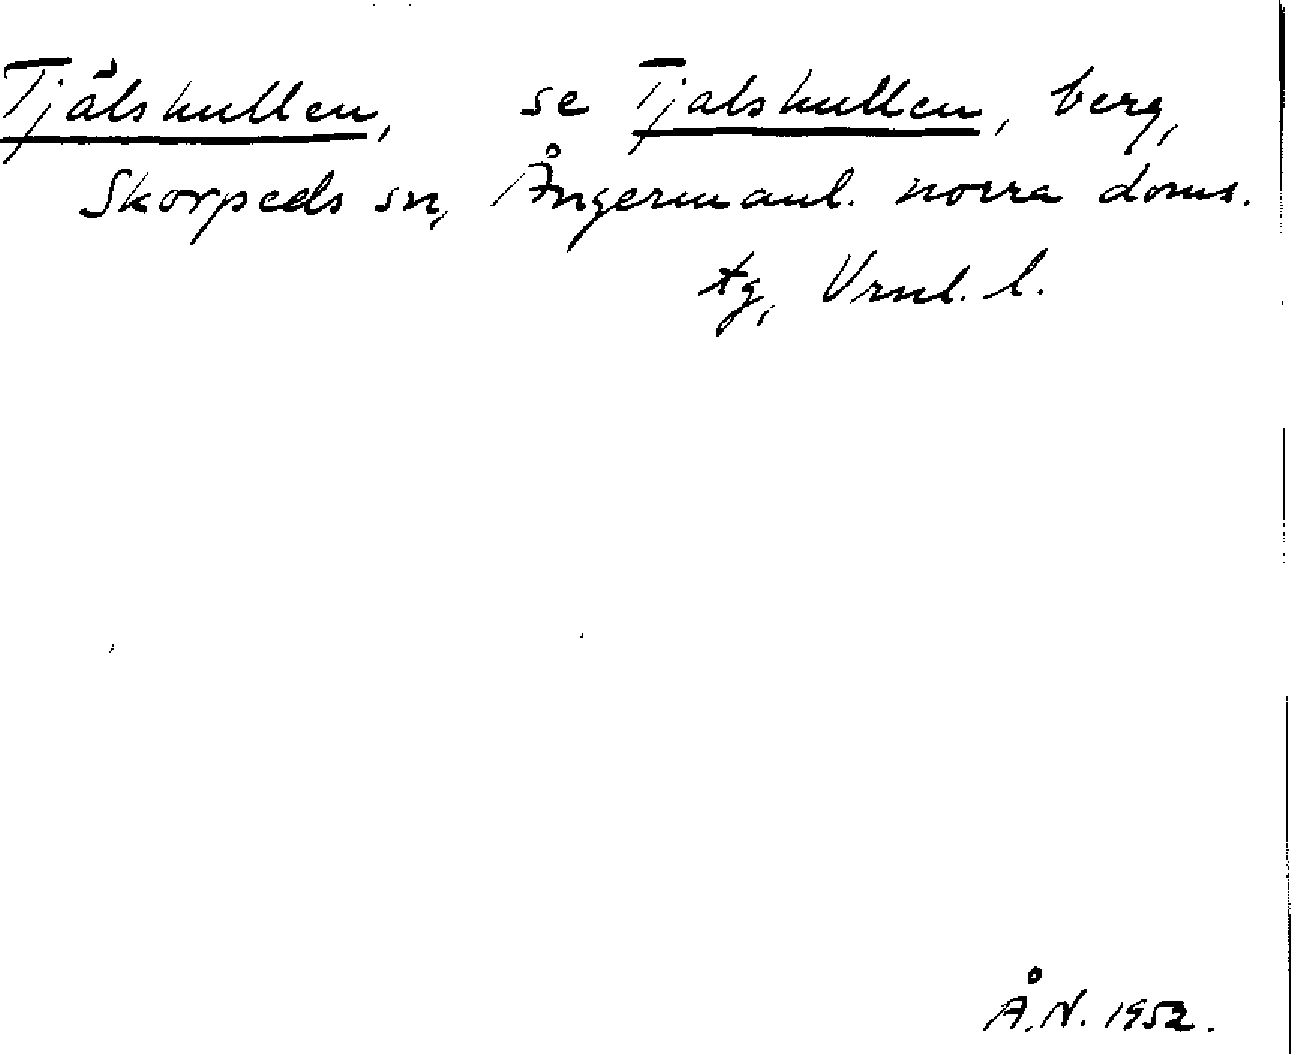 Tjålshullen, se Tjalshullen, berg,
Skorpeds sn, Ångermanl. norra doms.
tg, Vrnl. l.
Å.N. 1952.